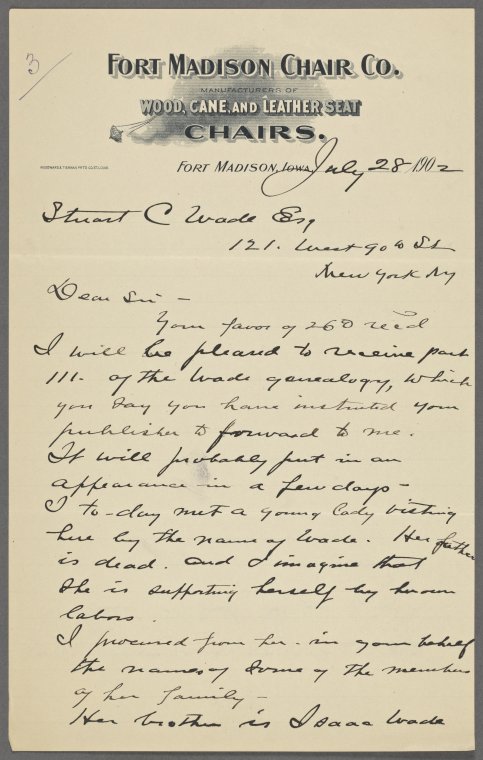 3
FORT MADISON CHAIR CO.
MANUFACTURERS OF
WOOD, CANE, AND LEATHER SEAT
CHAIRS.
FORT MADISON, IOWA, July 28 1902
Stuart C Wade Esq
121. West 90th St
New York Ny
Dear Sir -
Your favor of 26th recd
I will be pleased to receive part
111. of the Wade genealogy, which
you say you have instructed your
publisher to forward to me.
It will probably put in an
appearance in a few days -
I to-day met a young lady visiting
here by the name of Wade. Her father
is dead. and I imagine that
she is supporting herself by her own
labors.
I procured from her - in your behalf
the names of some of the members
of her family -
Her brother is Isaac Wade